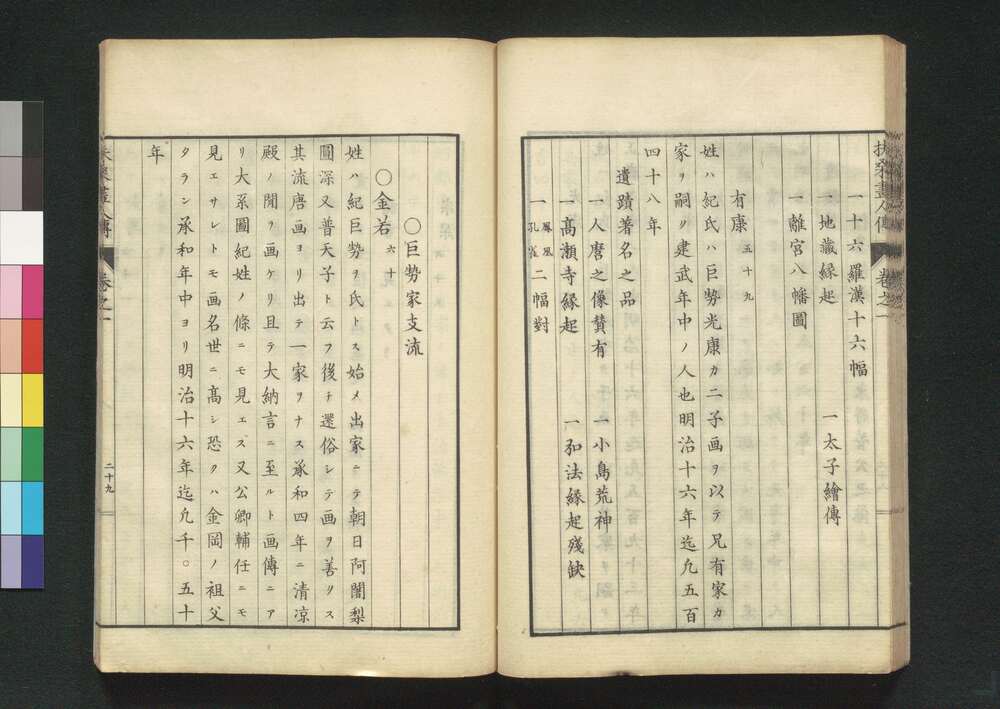 一十六羅漢十六幅
一地藏縁起
一太子繪傳
一離宮八幡圖
有康 五十九
姓ハ紀氏ハ巨勢光康カ二子画ヲ以テ兄有家カ
家リ嗣ク建武年中ノ人也明治十六年迄九五百
四十八年
遺蹟著名之品
一人麿之像賛有
一小島荒神
一髙瀬寺縁起
一弘法縁起殘缺
一鳳凰孔雀二幅對
卷之一
○巨勢家支流
○金若 六十
姓ハ紀巨勢ヲ氏トス始メ出家ニテ朝日阿闍梨
圓深又普天子ト云フ後チ還俗シテ画ヲ善リス
其流唐画ヨリ出テ一家ヲナス承和四年ニ清凉
殿ノ間ヲ画ケリ且テ大納言ニ至ルト画傳ニア
リ大系圖紀姓ノ條ニモ見エス又公卿輔任ニモ
見エサレトモ画名世ニ髙シ恐クハ金岡ノ祖父
タラン承和年中ヨリ明治十六年迄九千○五十
年
畫人傳
卷之一
二十九